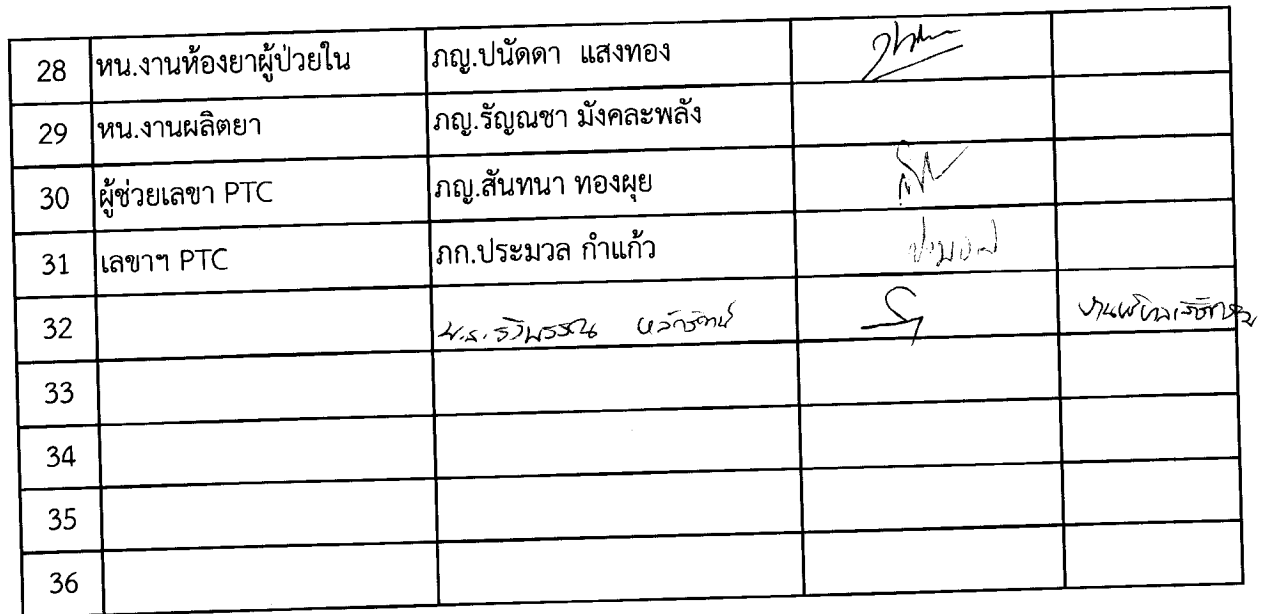 28 หน.งานห้องยาผู้ป่วยใน ภญ.ปนัดดา แสงทอง
29 หน.งานผลิตยา ภญ.รัญณชา มังคละพลัง
30 ผู้ช่วยเลขา PTC ภญ.สันทนา ทองผุย
31 เลขาฯ PTC ภก.ประมวล กำแก้ว ประมวล
32 น.ส.รวิพรรณ
33
34
35
36